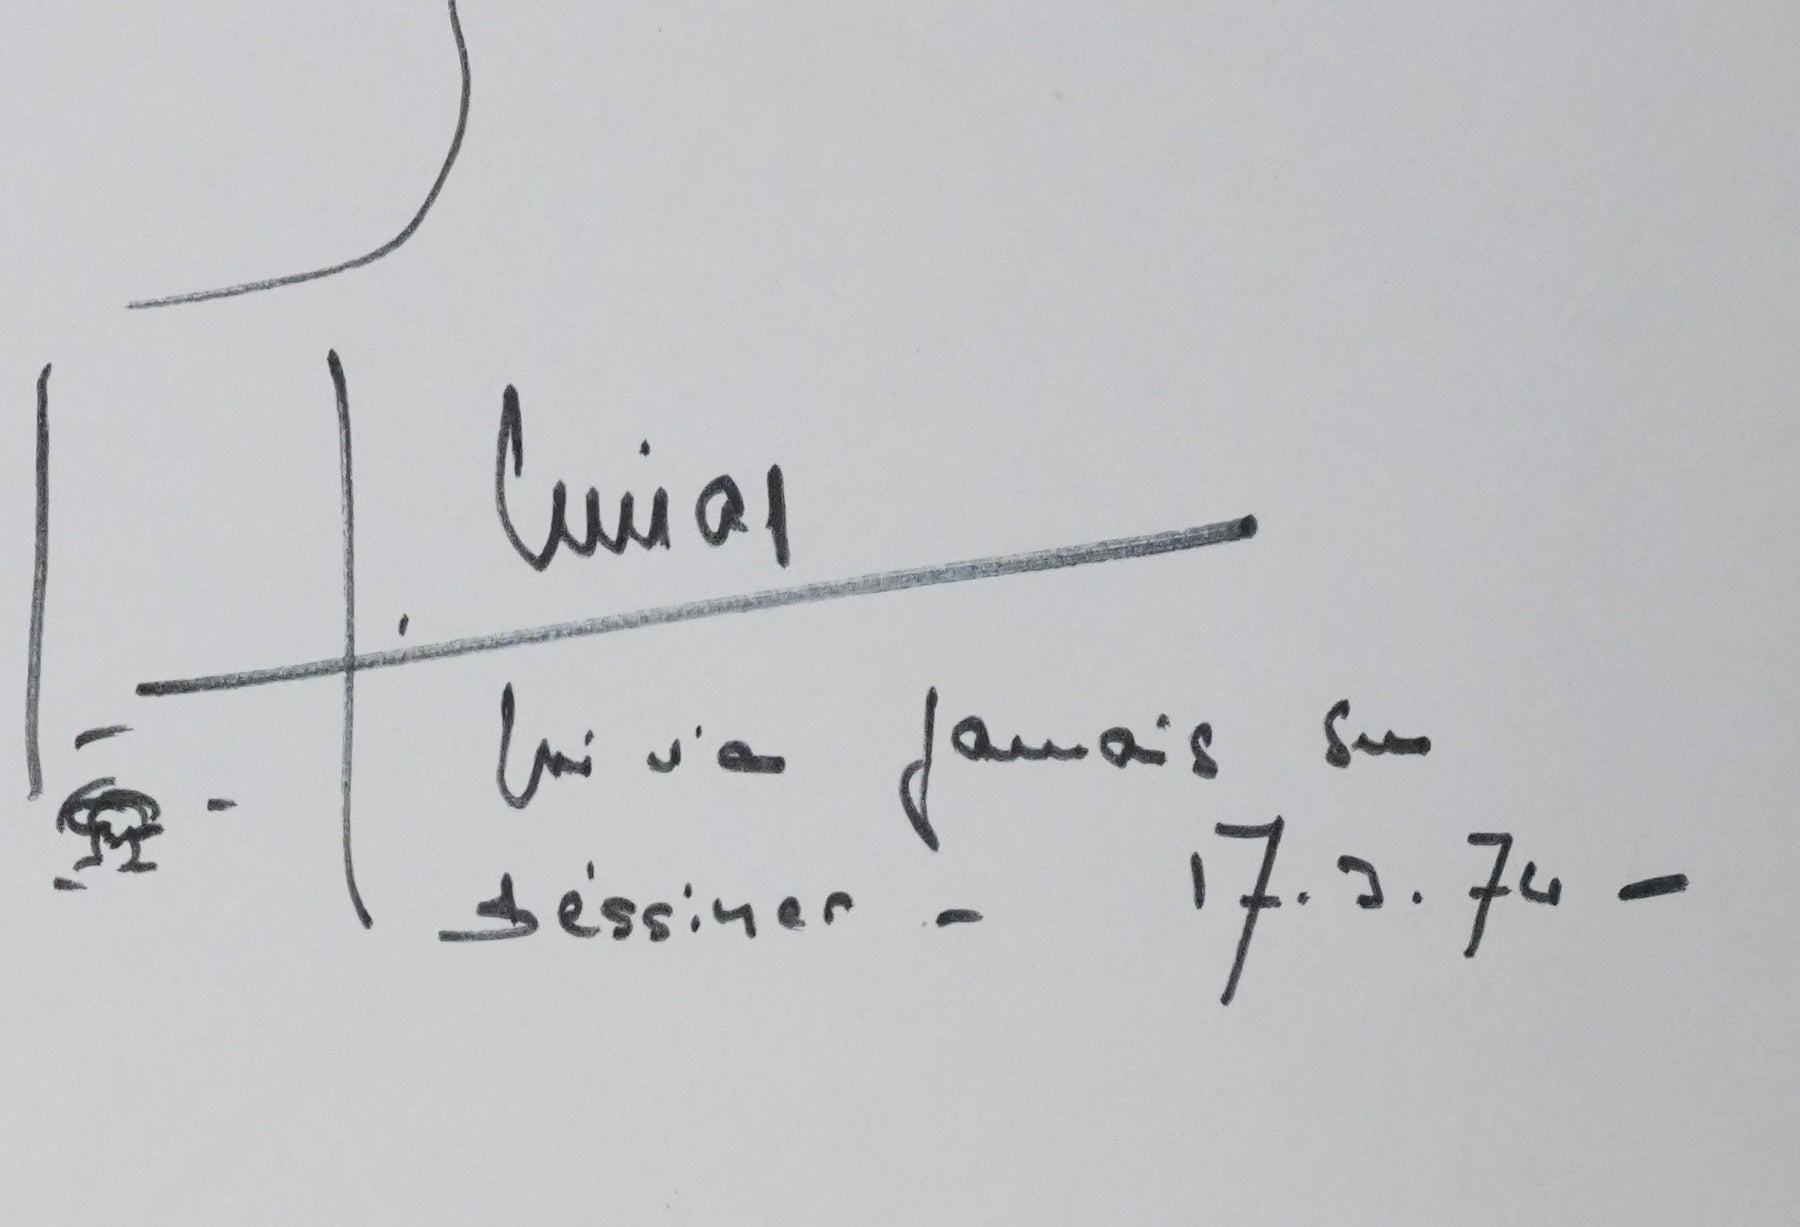 qui n'a jamais su
Déssiner - 17.3.74 -